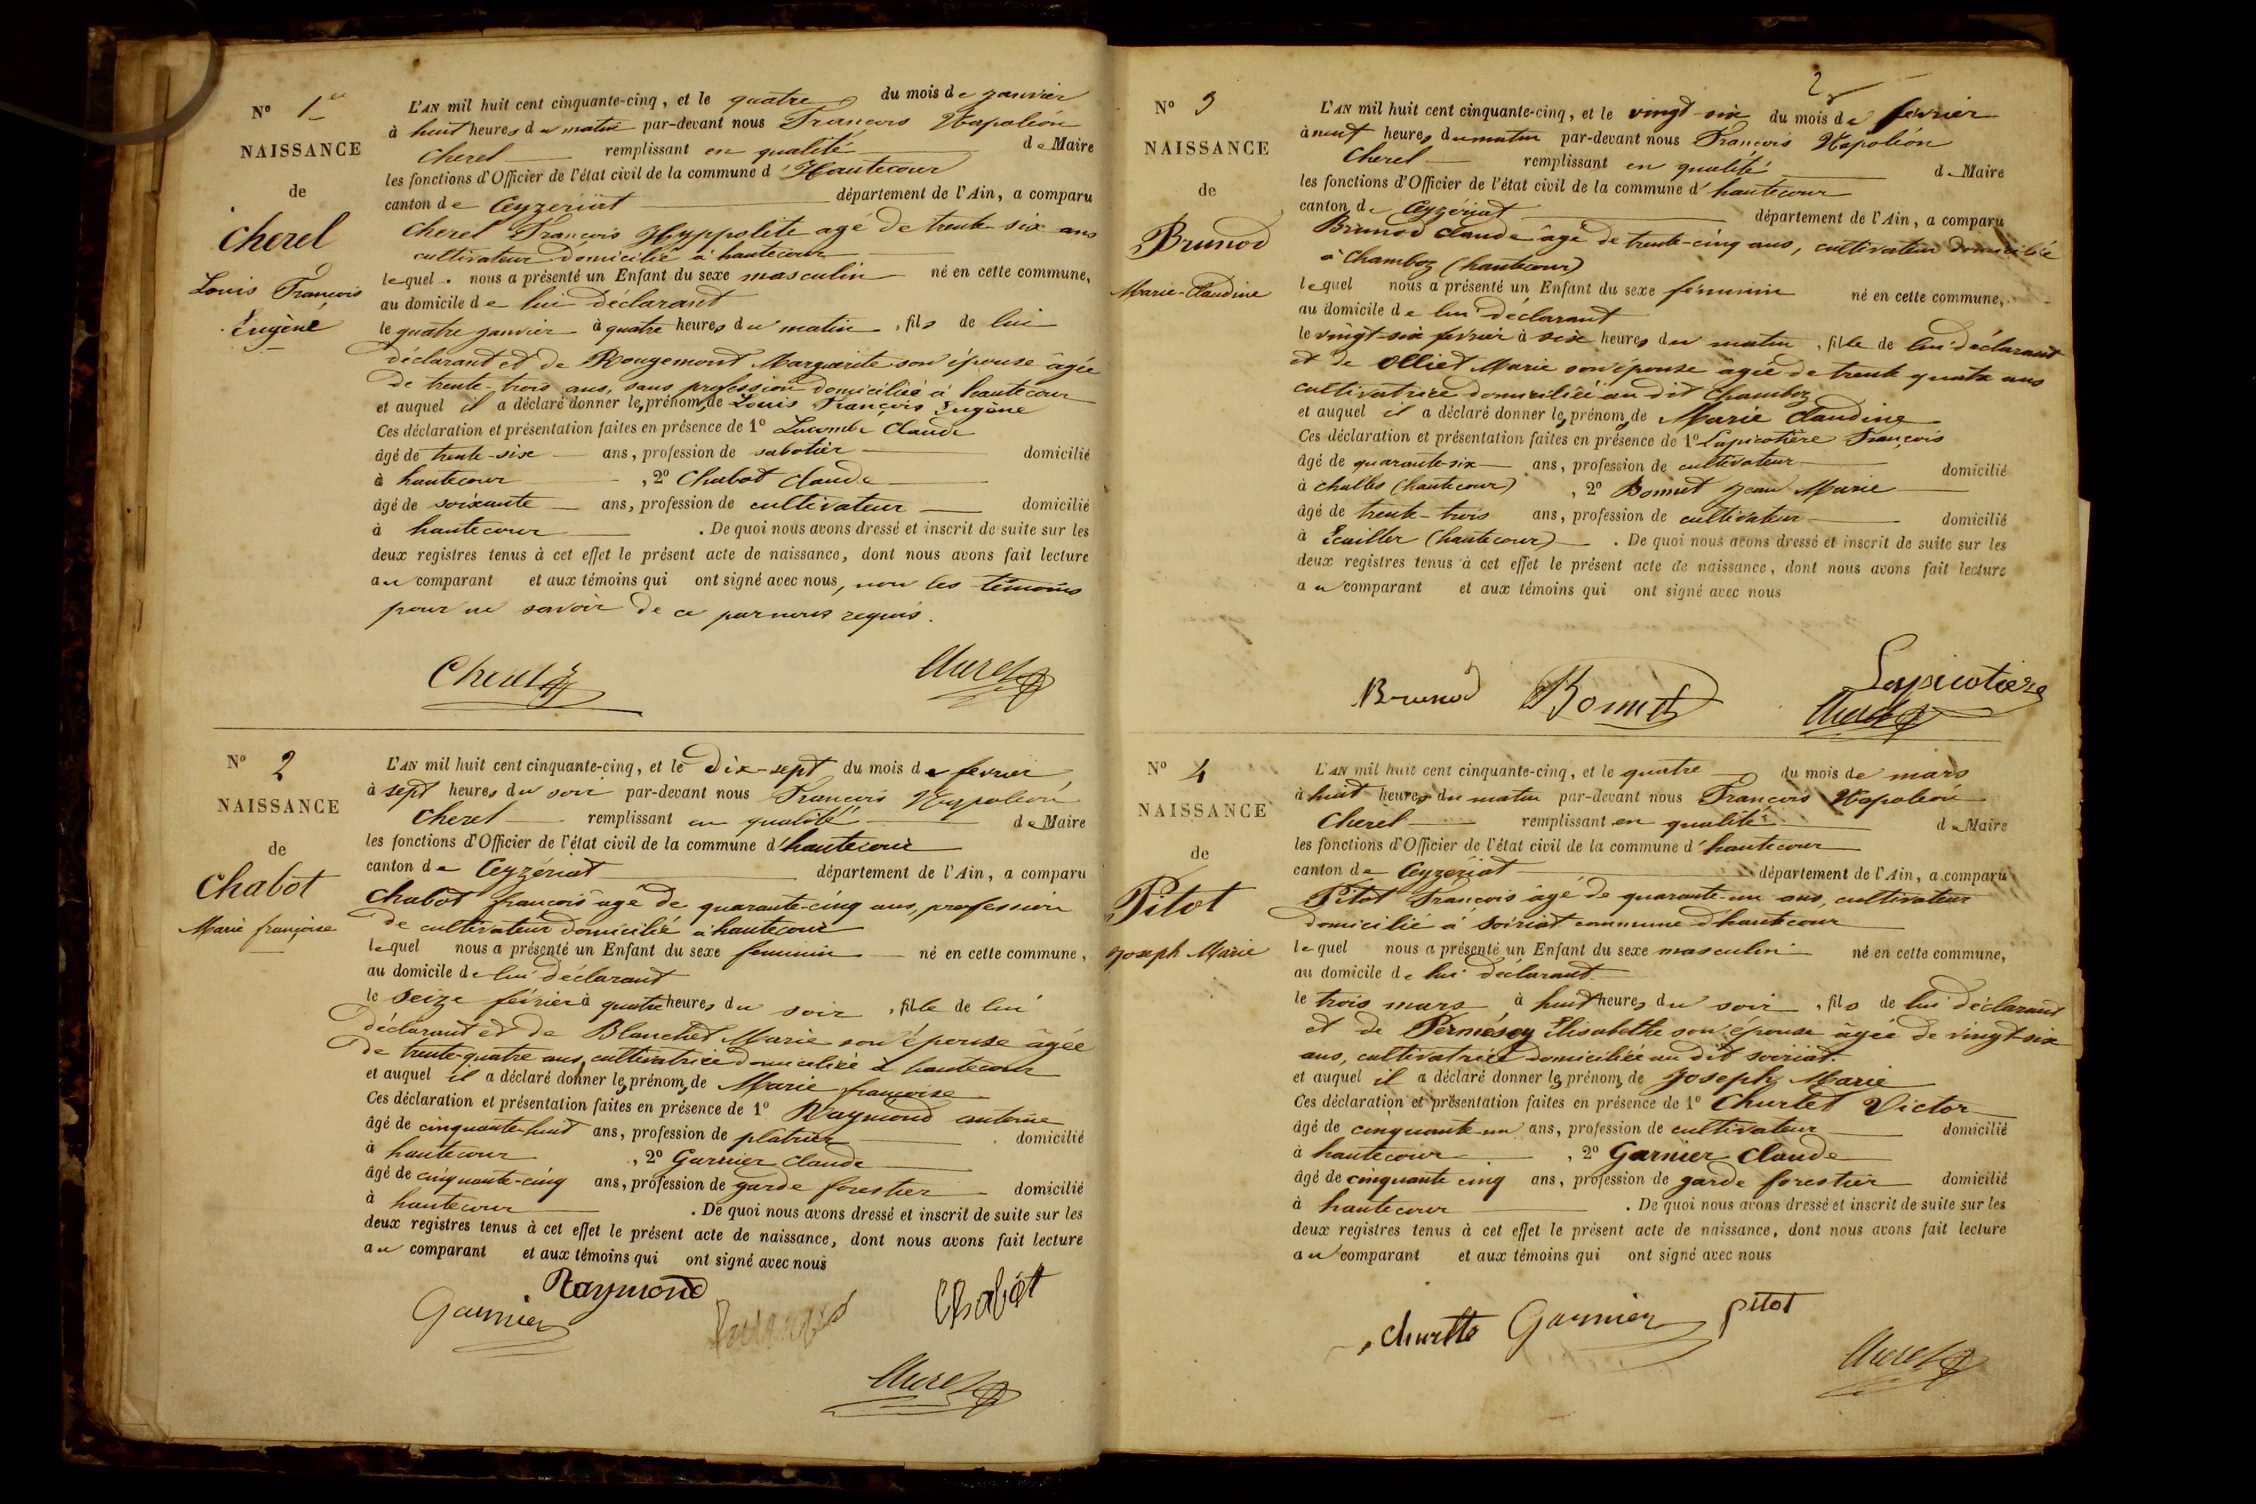 N° 1er
NAISSANCE
de
Cherel
Louis François
Eugène
L'AN mil huit cent cinquante-cinq, et le quatre du mois de janvier
à huit heures du matin par-devant nous François Napoléon
Cherel remplissant en qualité de Maire
les fonctions d'Officier de l'état civil de la commune d'Hautecour
canton de Ceyzeriat département de l'Ain, a comparu
Cherel François Hyppolite agé de trente-six ans
cultivateur domicilié à hautecour
lequel nous a présenté un Enfant du sexe masculin né en cette commune,
au domicile de lui déclarant
le quatre janvier à quatre heures du matin, fils de lui
déclarant et de Rougemont Marguerite son épouse âgée
de trente-trois ans, sans profession domiciliée à hautecour
et auquel il a déclaré donner les prénoms de Louis François Eugène
Ces déclaration et présentation faites en présence de 1° Lacombe Claude
âgé de trente-six ans, profession de sabotier domicilié
à hautecour, 2° Chabot Claude
âgé de soixante ans, profession de cultivateur domicilié
à hautecour. De quoi nous avons dressé et inscrit de suite sur les
deux registres tenus à cet effet le présent acte de naissance, dont nous avons fait lecture
au comparant et aux témoins qui ont signé avec nous, non les témoins
pour ne savoir de ce par nous requis.
Cherel
N° 2
NAISSANCE
de
Chabot
Marie françoise
L'AN mil huit cent cinquante-cinq, et le dix-sept du mois de fevrier
à sept heures du soir par-devant nous François Napoléon
Cherel remplissant en qualité de Maire
les fonctions d'Officier de l'état civil de la commune d'hautecour
canton de Ceyzériat département de l'Ain, a comparu
Chabot françois âgé de quarante-cinq ans, profession
de cultivateur domicilié à hautecour
lequel nous a présenté un Enfant du sexe feminin né en cette commune,
au domicile de lui déclarant
le seize février à quatre heures du soir, fille de lui
déclarant et de Blanchet Marie son épouse âgée
de trente-quatre ans, cultivatrice domiciliée à hautecour
et auquel il a déclaré donner les prénoms de Marie françoise
Ces déclaration et présentation faites en présence de 1° Raymond antoine
âgé de cinquante-huit ans, profession de plâtrier domicilié
à hautecour, 2° Garnier Claude
âgé de cinquante-cinq ans, profession de garde forestier domicilié
à hautecour. De quoi nous avons dressé et inscrit de suite sur les
deux registres tenus à cet effet le présent acte de naissance, dont nous avons fait lecture
au comparant et aux témoins qui ont signé avec nous
Raymond
Garnier Chabot
2
N° 3
NAISSANCE
de
Brunod
Marie-Claudine
L'AN mil huit cent cinquante-cinq, et le vingt-six du mois de fevrier
à neuf heures du matin par-devant nous François Napoléon
Cherel remplissant en qualité de Maire
les fonctions d'Officier de l'état civil de la commune d'hautecour
canton de Ceyzériat département de l'Ain, a comparu
Brunod Claude âgé de trente-cinq ans, cultivateur domicilié
à Chamboz (hautecour)
lequel nous a présenté un Enfant du sexe féminin né en cette commune,
au domicile de lui déclarant
le vingt-six fevrier à six heures du matin, fille de lui déclarant
et de Olliet Marie son épouse âgée de trente quatre ans
cultivatrice domiciliée au dit Chamboz
et auquel il a déclaré donner les prénoms de Marie Claudine
Ces déclaration et présentation faites en présence de 1° Lapicotière François
âgé de quarante-six ans, profession de cultivateur domicilié
à Challes (hautecour), 2° Bonnet Jean Marie
âgé de trente-trois ans, profession de cultivateur domicilié
à Ecuiller (hautecour). De quoi nous avons dressé et inscrit de suite sur les
deux registres tenus à cet effet le présent acte de naissance, dont nous avons fait lecture
au comparant et aux témoins qui ont signé avec nous
Brunod Bonnet Lapicotière
N° 4
NAISSANCE
de
Pitot
Joseph Marie
L'AN mil huit cent cinquante-cinq, et le quatre du mois de mars
à huit heures du matin par-devant nous François Napoléon
Cherel remplissant en qualité de Maire
les fonctions d'Officier de l'état civil de la commune d'hautecour
canton de Ceyzériat département de l'Ain, a comparu
Pitot François âgé de quarante-un ans, cultivateur
domicilié à soiriat commune d'hautecour
lequel nous a présenté un Enfant du sexe masculin né en cette commune,
au domicile de lui déclarant
le trois mars à huit heures du soir, fils de lui déclarant
et de Élisabethe son épouse âgée de vingt-six
ans, cultivatrice domiciliée au dit soiriat.
et auquel il a déclaré donner les prénoms de Joseph Marie
Ces déclaration et présentation faites en présence de 1° Churlet Victor
âgé de cinquante-un ans, profession de cultivateur domicilié
à hautecour, 2° Garnier Claude
âgé de cinquante cinq ans, profession de garde forestier domicilié
à hautecour. De quoi nous avons dressé et inscrit de suite sur les
deux registres tenus à cet effet le présent acte de naissance, dont nous avons fait lecture
au comparant et aux témoins qui ont signé avec nous
Garnier pitot